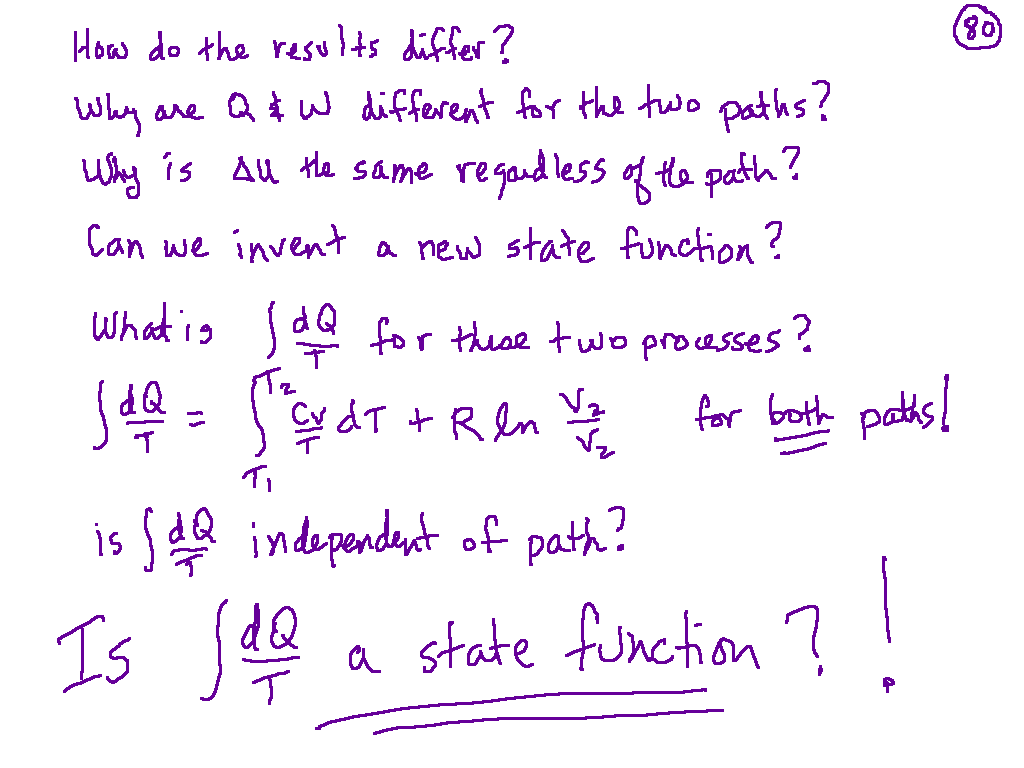 80
How do the results differ?
Why are Q & W different for the two paths?
Why is ΔU the same regardless of the path?
Can we invent a new state function?
What is ∫ dQ/T for these two processes?
∫ dQ/T = ∫_{T1}^{T2} Cv/T dT + R ln V2/V2 for both paths!
is ∫ dQ/T independent of path?
Is ∫ dQ/T a state function? !